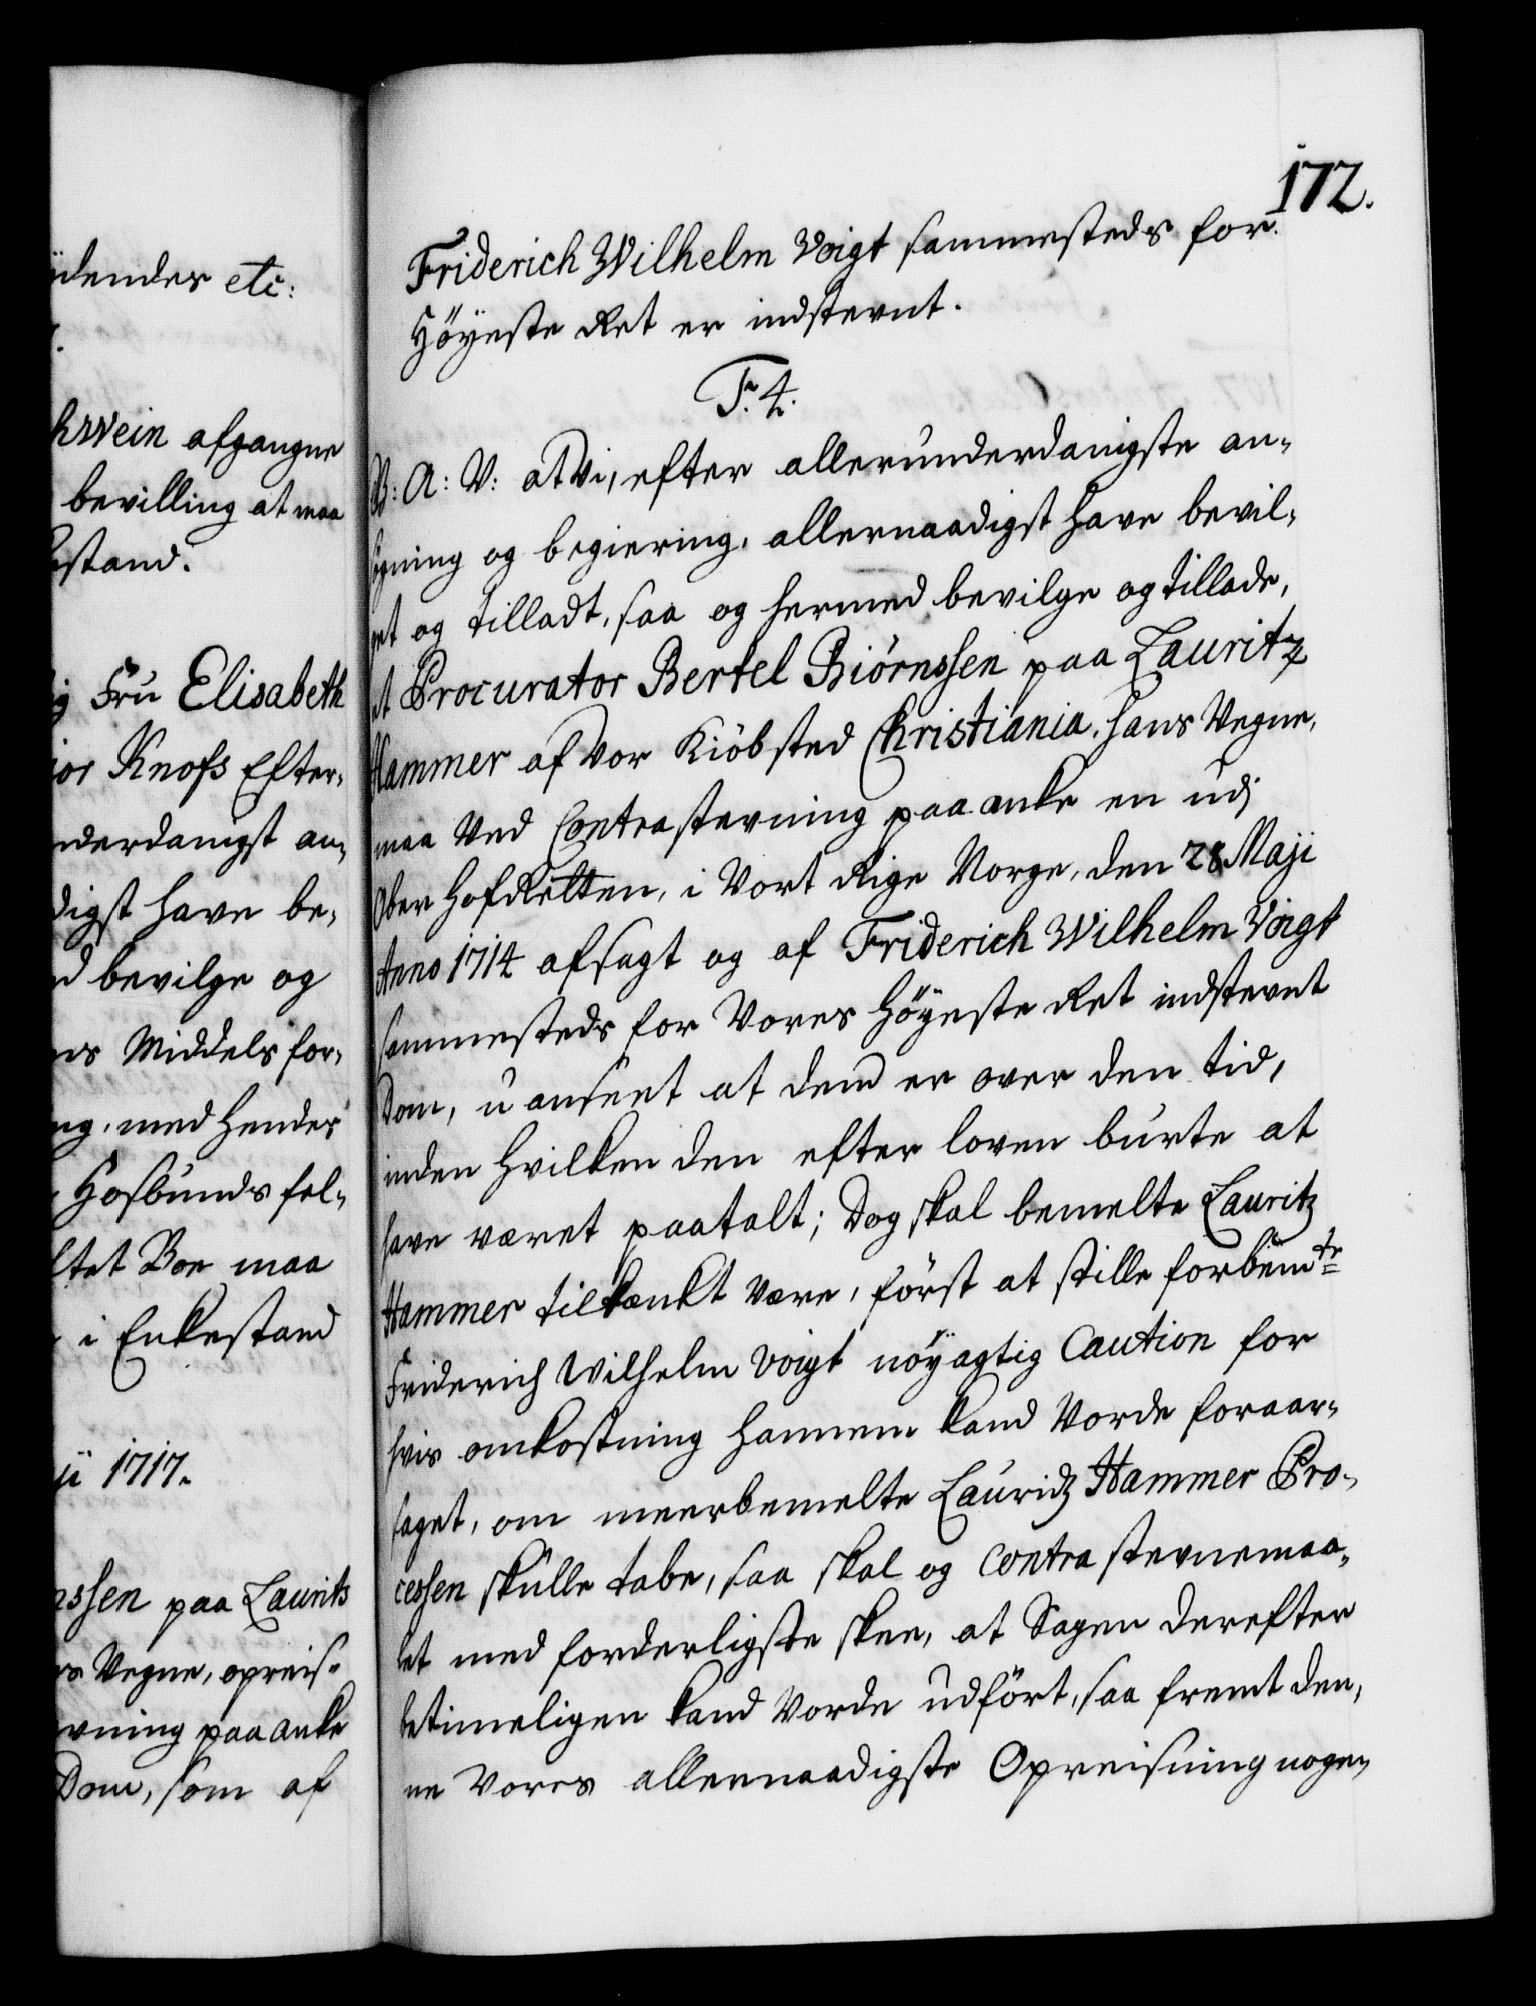 ÿdendes etc:
hrwein afgangne
bevilling at maa
stand.
Fru Elisabeth
ior Knofs Efter-
nderdanigst an-
digst have be-
bevilge og
Middels for-
ng, med hendes
Hosbunds fel-
ltet Boe maa
i Enkestand
ii 1717.
nssen paa Laurits
rs Vegne, opreis-
vning paa anke
Dom, som af
172.
Friderich Wilhelm Voigt sammesteds for
Höyeste Ret er indstevnt.
F. 4.
G: A: V: at Vi, efter allerunderdanigste an-
sögning og begiering, allernaadigst have bevil-
get og tilladt, saa og hermed bevilge og tillade,
at Procurator Bertel Biörnssen paa Lauritz
Hammer af Vor Kiöbsted Christiania, hans Vegne,
maa Ved Contrastevning paa anke en udj
Ober HofRetten, i Vort Rige Norge, den 28 Maji
Anno 1714 afsagt og af Friderich Wilhelm Voigt
sammesteds for Vores Höyeste Ret indstevnt
Dom, u anseet at dend er over den tid,
inden hvilken den efter loven burte at
have været paatalt; Dog skal bemelte Lauritz
Hammer tiltænkt være, först at stille forbem.te
Friderich Wilhelm Voigt nöyagtig Caution for
hvis omkostning hannem kand Vorde foraar-
saget, om meerbemelte Lauridz Hammer Pro-
cessen skulle tabe, saa skal og Contra stevnemaa-
let med forderligste skee, at Sagen derefter
betimeligen kand Vorde udfört, saa fremt den-
ne Vores allernaadigste Opreisning nogen